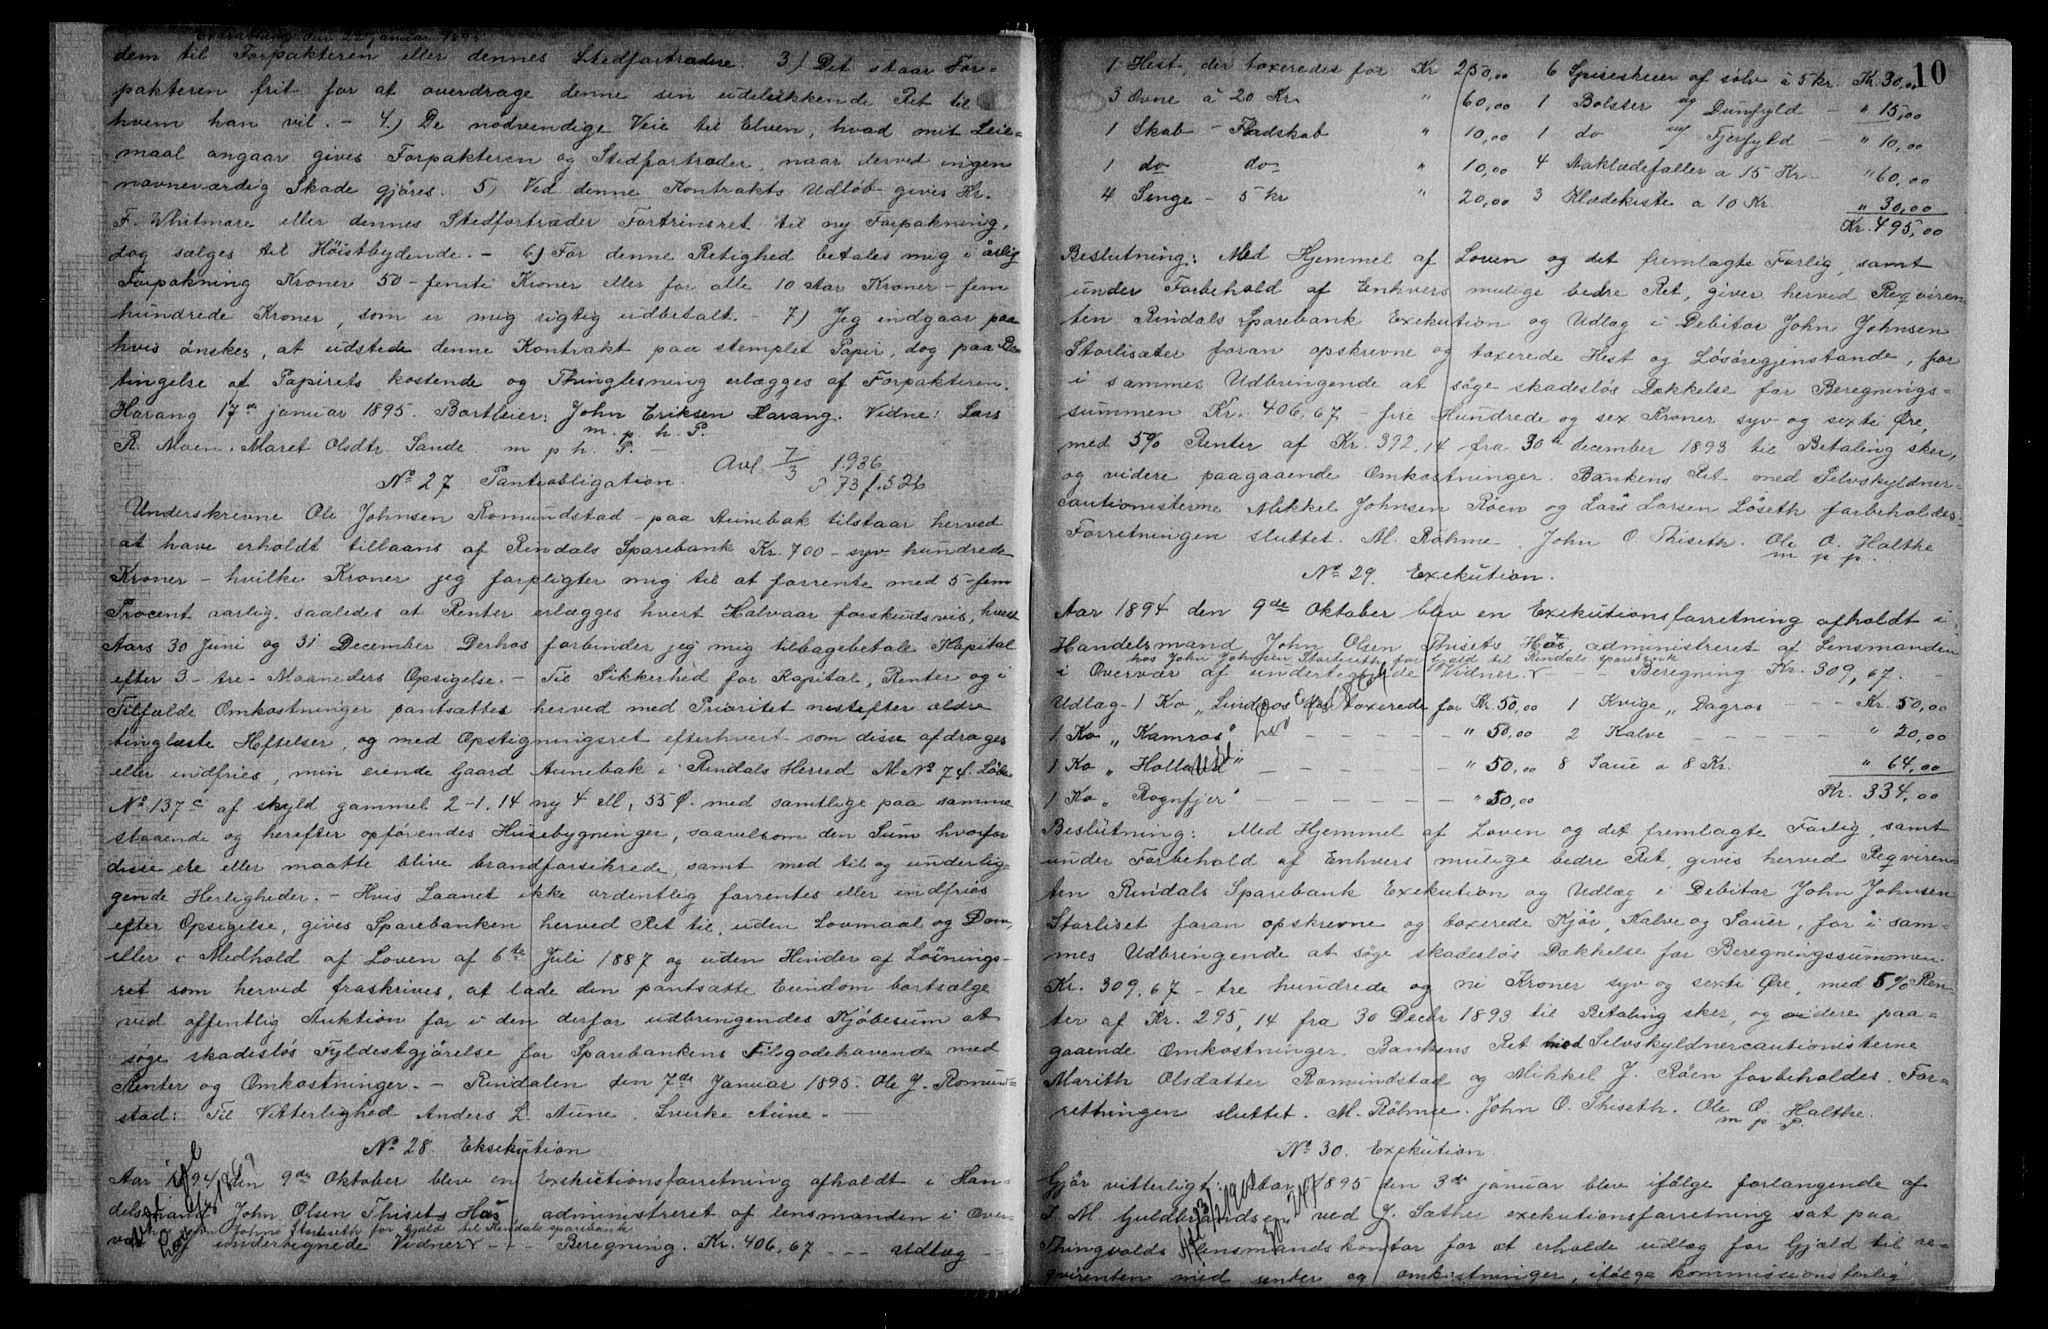 Extrathing den 22 januar 1895
dem til Forpakteren eller dennes Stedfortrædere. 3) Det staar For-
pakteren frit for at overdrage denne sin udelukkende Ret til
hvem han vil. - 4.) De nødvendige Veie til Elven, hvad mit Leie-
maal angaar gives Forpakteren og Stedfortræder, naar derved ingen
navneværdig Skade gjøres. 5) Ved denne Kontrakts Udløb gives Hr.
F. Whitmore eller dennes Stedfortræder Fortrinsret til ny Forpakning,
dog sælges til Höistbydende. - 6) For denne Retighed betales mig i årlig
Forpakning Kroner 50 - femti Kroner eller for alle 10 Aar Kroner - fem
hundrede Kroner, som er mig rigtig udbetalt. - 7) Jeg indgaar paa
hvis ønskes, at udstede denne Kontrakt paa stemplet Papir, dog paa Be-
tingelse at Papirets kostende og Thinglesning erlægges af Forpakteren.
Harang 17de januar 1895. Bortleier: John Eriksen Harang. Vidne: Lars
m. p. h. P.
R. Moen. Maret Olsdtr Sande. m p h. P. -
Avl. 7/3 1936
P 73 f. 526
No 27 Panteobligation.
Underskrevne Ole Johnsen Romundstad - paa Aunebak tilstaar herved
at have erholdt tillaans af Rindals Sparebank Kr. 700 - syv hundrede
Kroner - hvilke Kroner jeg forpligter mig til at forrente med 5 - fem
Procent aarlig saaledes at Renter erlægges hvert Halvaar forskudsvis, hvert
Aars 30 Juni og 31 December. Derhos forbinder jeg mig tilbagebetale Kapital
efter 3 - tre - Maaneders Opsigelse. - Til Sikkerhed for Kapital, Renter og i
Tilfælde Omkostninger pantsættes herved med Prioritet nestefter ældre
tinglæste Heftelser, og med Opstigningsret efterhvert som disse afdrages
eller indfries, min eiende Gaard Aunebak i Rindals Herred M No 74. Løbe
No 137c af skyld gammel 2-1.14 ny 4 M, 55 Ø. med samtlige paa samme
staaende og herefter opførendes Husebygninger, saavelsom den Sum hvorfor
disse ere eller maatte blive brandforsikrede, samt med til og underlig-
gende Herligheder. - Hvis Laanet ikke ordentlig forrentes eller indfries
efter Opsigelse, gives Sparebanken herved Ret til, uden Lovmaal og Dom,
eller i Medhold af Loven af 6te Juli 1887 og uden Hinder af Løsnings-
ret som herved fraskrives, at lade den pantsatte Eiendom bortsælge
ved offentlig Auktion for i den derfor udbringendes Kjøbesum at
søge skadesløs Fyldestgjørelse for Sparebankens Tilgodehavende med
Renter og Omkostninger. - Rindalen den 7de Januar 1895. Ole J. Romund-
stad: Til Vitterlighed Anders L. Aune. Sverke Aune. -
No 28. Eksekution
Aar 1894 den 9de Oktober blev en Exekutionsforretning afholdt i Han-
delsmand John Olsen Thisets Hus administreret af lensmanden i Over-
hos John Johns Storliseth for Gjæld til Rindals sparebank
vær af undertegnede Vidner - - - Beregning. Kr. 406,67 - - - Udlæg -
10
1 Hest, der taxeredes for Kr 250,00 6 Spiseskeer af sølv à 5 kr. Kr. 30,00
3 Ovne à 20 Kr. " 60,00 1 Bolster m/ Dunfyld - " 15,00
1 Skab - Fladskab " 10,00 1 do m/ Fjerfyld - " 10,00
1 do do " 10,00 4 Aaklædefæller a 15 Kr. - " 60,00
4 Senge - 5 kr " 20,00 3 Klædekiste a 10 Kr " 30,00
Kr. 495,00
Beslutning: Med Hjemmel af Loven og det fremlagte Forlig, samt
under Forbehold af Enhvers mulige bedre Ret, giver herved Reqviren-
ten Rindals Sparebank Exekution og Udlæg i Debitor John Johnsen
Storlisæter foran opskrevne og taxerede Hest og Løsøregjenstande, for
i sammes Udbringende at søge skadesløs Dækkelse for Beregnings-
summen Kr. 406,67 - fire Hundrede og sex Kroner syv og sexti Øre,
med 5% Renter af Kr. 392,14 fra 30te december 1893 til Betaling sker,
og videre paagaaende Omkostninger. Bankens Ret med Selvskyldner-
cautionisterne Mikkel Johnsen Røen og Lars Larsen Løseth forbeholdes.
Forretningen sluttet. M. Röhme. John O. Thiseth. Ole O. Halthe
m p p.
No 29. Exekution.
Aar 1894 den 9de Oktober blev en Exekutionsforretning afholdt i
Handelsmand John Olsen Thisets Hus administreret af Lensmanden
hos John Johnsen Storliseth for Gjæld til Rindals sparebank
i Overvær af undertegnede Vidner. - - - Beregning Kr. 309,67. -
Udlæg - 1 Ko "Lindros" der taxerede for Kr. 50,00 1 Kvige "Dagros - - - Kr. 50,00
1 Ko "Kamros" - - - - - " 50,00 2 Kalve - - - - " 20,00
1 Ko "Holland" - - - - - " 50,00 8 Saue a 8 Kr. " 64,00
1 Ko "Rognfjer" - - - - - " 50,00 Kr. 334,00
Beslutning: Med Hjemmel af Loven og det fremlagte Forlig, samt
under Forbehold af Enhvers mulige bedre Ret, givis herved Reqviren-
ten Rindals Sparebank Exekution og Udlæg i Debitor John Johnsen
Storliset foran opskrevne og taxerede Kjör, Kalve og Sauer, for å i sam-
mes Udbringende at søge skadesløs Dækkelse for Beregningssummen
Kr. 309,67 - tre hundrede og ni Kroner syv og sexti Øre, med 5% Ren-
ter af Kr. 295,14 fra 30 Decbr 1893 til Betaling sker, og videre paa-
gaaende Omkostninger. Bankens Ret mod Selvskyldnercautionisterne
Marith Olsdatter Romundstad og Mikkel J. Röen forbeholdes. For-
retningen sluttet. M. Röhme. John O. Thiseth. Ole O. Halthe.
m p p.
No 30. Exekution.
Gjør vitterligt: Aar 1895 den 3de januar blev ifölge forlangende af
I. M. Guldbrandsen ved J. Sæther exekutionsforretning sat paa
Thingvolds lensmandskontor for at erholde udlæg for Gjæld til re-
qvirenten med renter og omkostninger, ifølge kommissionsforlig